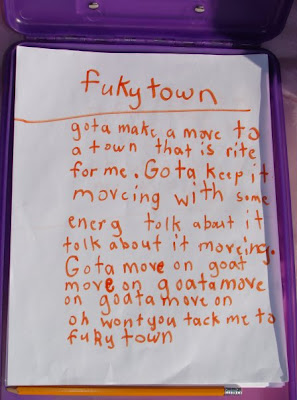 fukytown
gota make a move to
a town that is rite
for me. Gota keep it
movcing with some
energ tolk about it
tolk about it movcing.
Gota move on goat
move on goatamove
on goata move on
oh wont you tack me to
fuky town